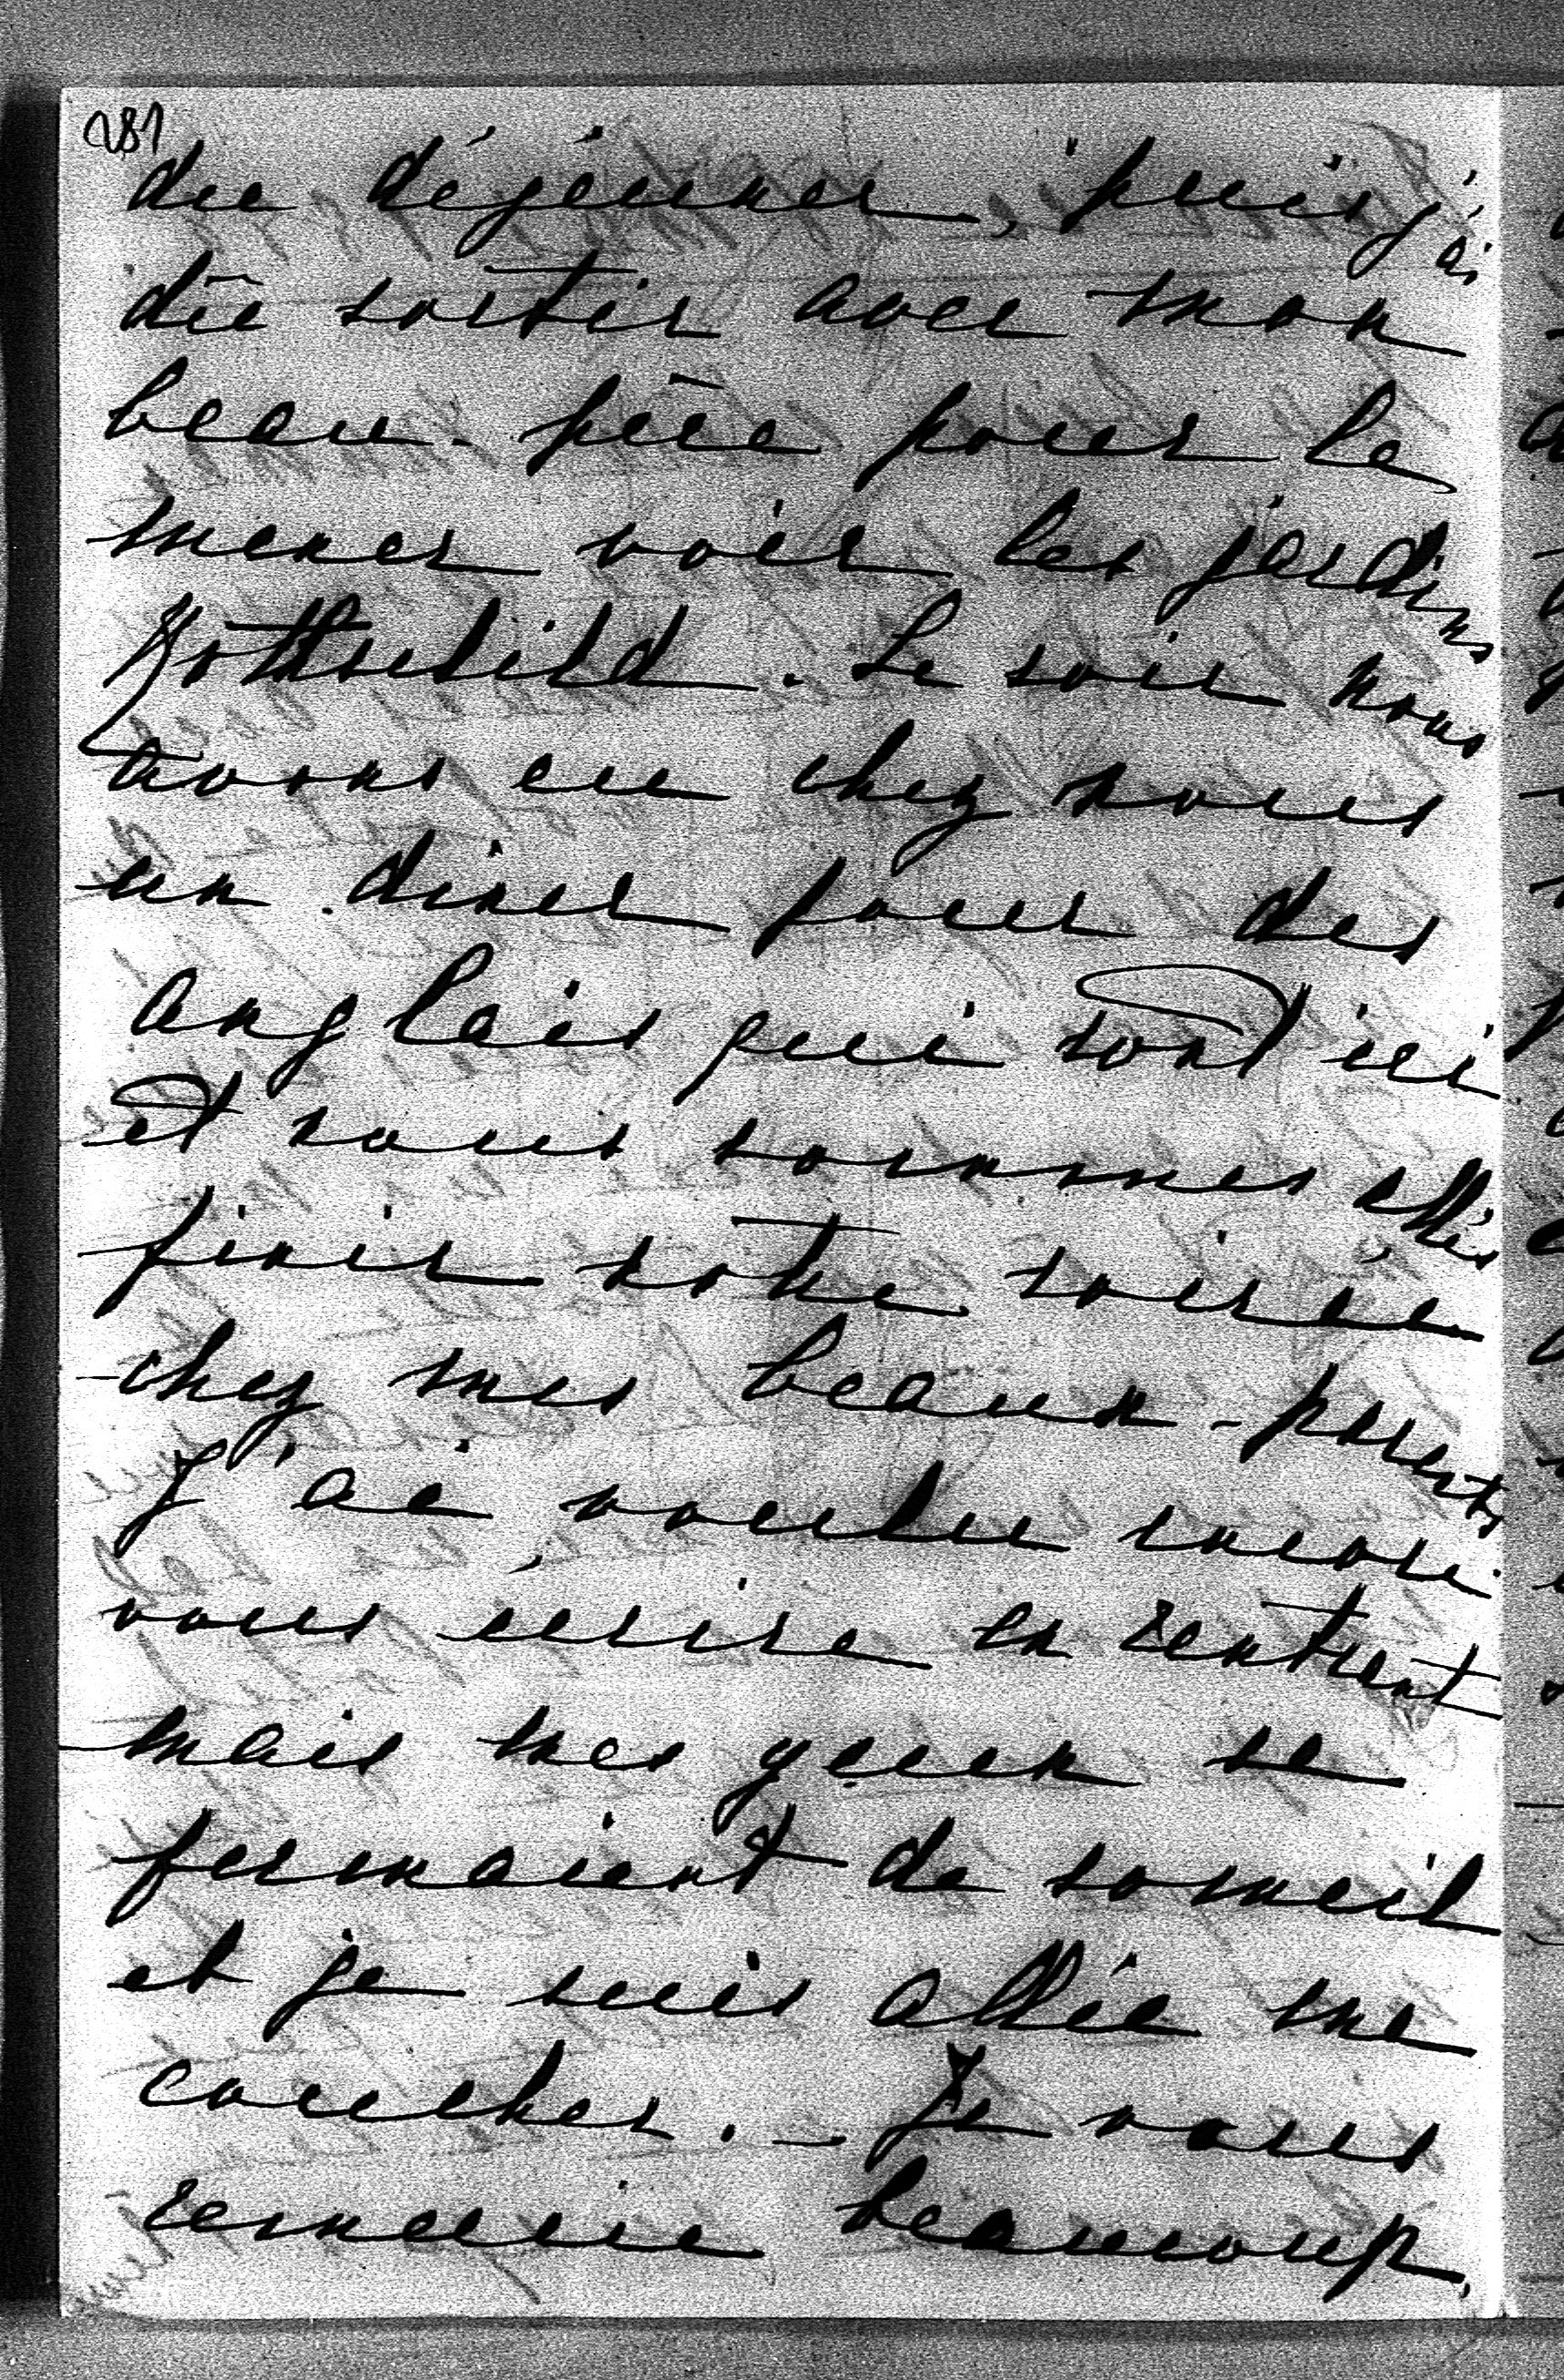 281
du déjeuner, puis j'ai
dû sortir avec mon
beau-père pour le
mener voir les jardins
Rothschild. Le soir nous
avons eu chez nous
un diner pour des
anglais qui sont ici
et nous sommes allés
finir notre soirée
chez mes beaux-parents
J'ai voulu encore
vous écrire en rentrant
mais mes yeux se
fermaient de someil
et je suis allée me
coucher. - Je vous
remercie beaucoup,